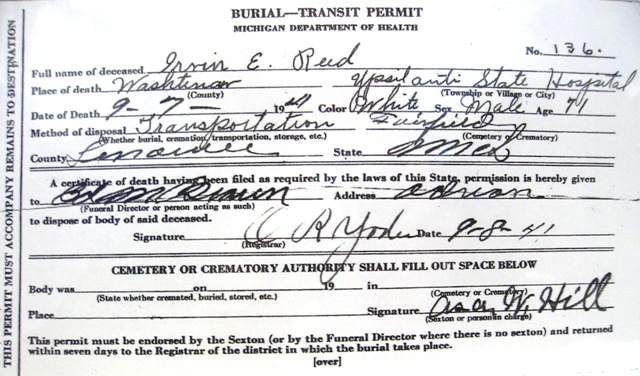 BURIAL—TRANSIT PERMIT
MICHIGAN DEPARTMENT OF HEALTH
No. 136.
Full name of deceased Irvin E. Reed
Place of death Washtenaw Ypsilanti State Hospital
(County) (Township or Village or City)
Date of Death 9-7- 1941 Color White Sex Male Age 71
Method of disposal Transportation Fairfield
(Whether burial, cremation, transportation, storage, etc.) (Cemetery or Crematory)
County Lenawee State
A certificate of death having been filed as required by the laws of this State, permission is hereby given
to Brown Address Adrian
(Funeral Director or person acting as such)
to dispose of body of said deceased.
Signature O R Yoder Date 9-8-41
(Registrar)
CEMETERY OR CREMATORY AUTHORITY SHALL FILL OUT SPACE BELOW
Body was on 19 in
(State whether cremated, buried, stored, etc.) (Cemetery or Crematory)
Place Signature Asa W. Hill
(Sexton or person in charge)
This permit must be endorsed by the Sexton (or by the Funeral Director where there is no sexton) and returned
within seven days to the Registrar of the district in which the burial takes place.
[over]
THIS PERMIT MUST ACCOMPANY REMAINS TO DESTINATION